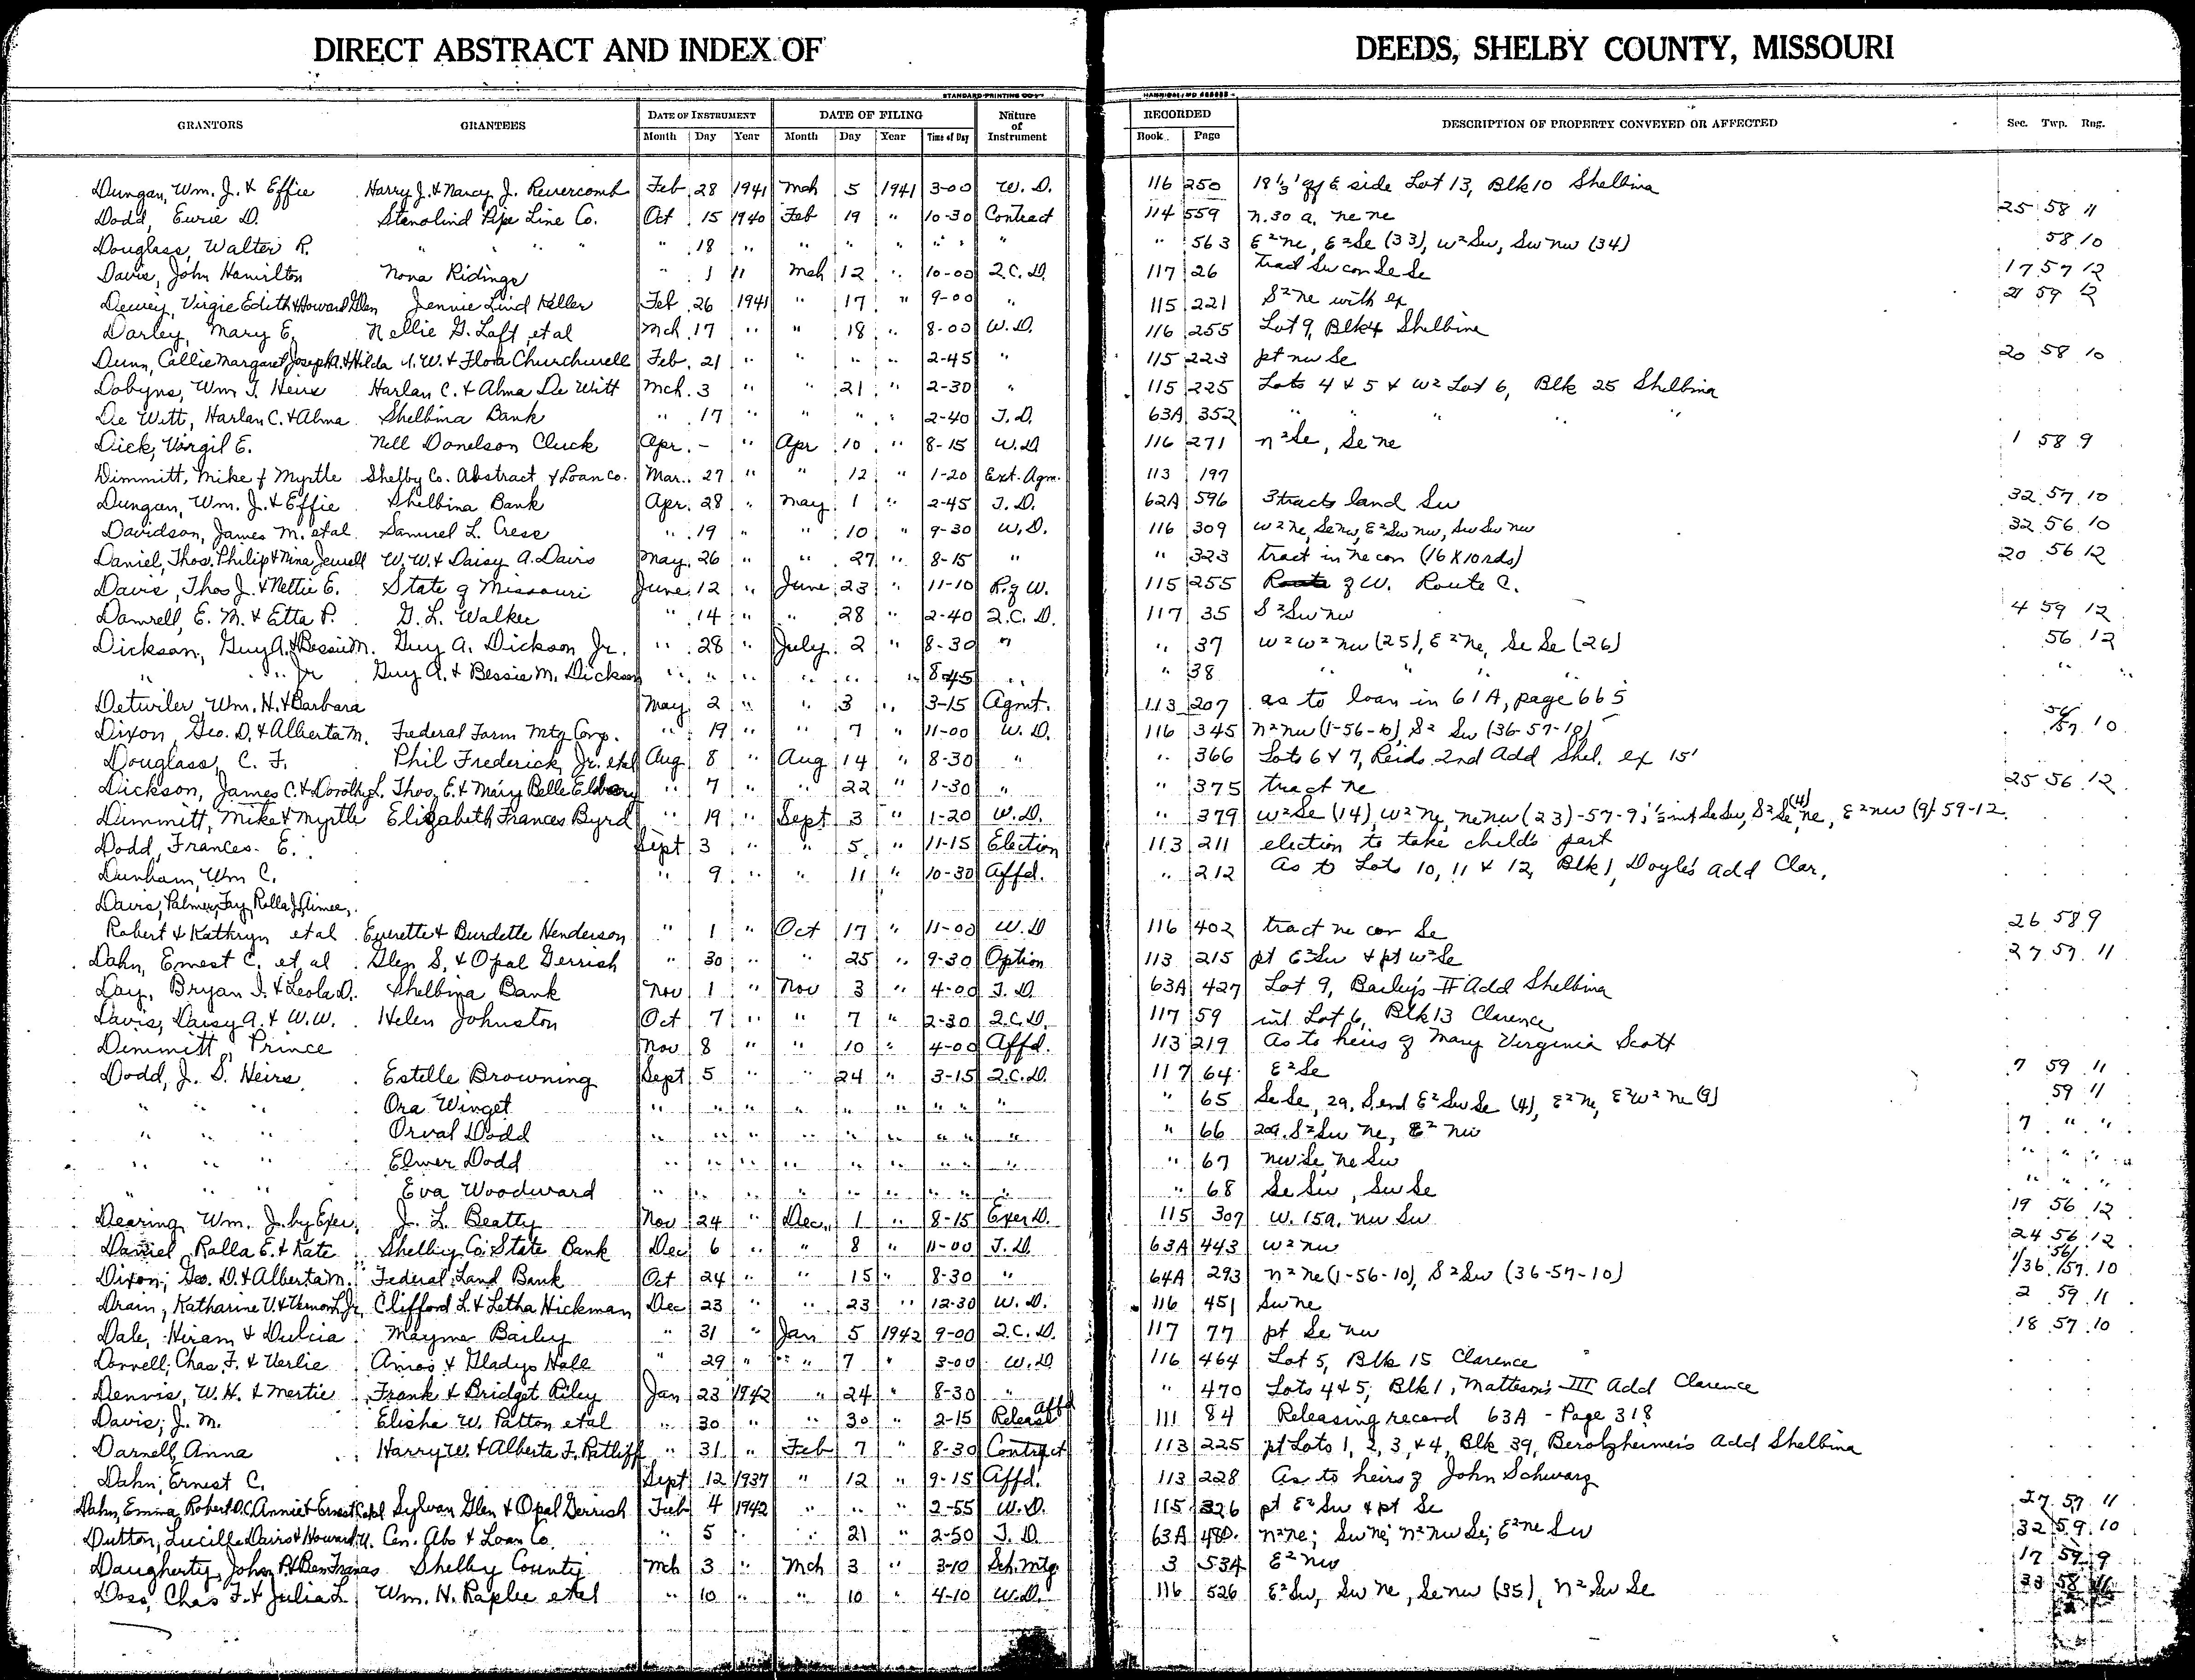 DIRECT ABSTRACT AND INDEX OF DEEDS, SHELBY COUNTY, MISSOURI
GRANTORS GRANTEES DATE OF INSTRUMENT DATE OF FILING Nature of Instrument RECORDED DESCRIPTION OF PROPERTY CONVEYED OR AFFECTED Sec. Twp. Rng.
Month Day Year Month Day Year Time of Day Book Page
Dungan, Wm. J. & Effie Harry J. & Nancy J. Revercomb Feb 28 1941 Mch 5 1941 3-00 W. D. 116 250 18⅓' of E side Lot 13, Blk 10 Shelbina
Dodd, Eurie D. Stanolind Pipe Line Co. Oct 15 1940 Feb 19 " 10-30 Contract 114 559 n. 30 a. ne ne 25 58 11
Douglass, Walter R. " " " " " 18 " " " " " " " 563 E²ne, E²Se (33), W²Sw, Sw nw (34) 58 10
Davis, John Hamilton Nona Ridings " 1 11 Mch 12 " 10-00 Q.C.D. 117 26 tract Sw cor Se Se 17 57 12
Dewey, Virgie Edith & Howard Glen Jennie Lind Keller Feb 26 1941 " 17 " 9-00 " 115 221 S²ne with ex 21 59 12
Darley, Mary E. Nellie G. Taft et al Mch 17 " " 18 " 8-00 W.D. 116 255 Lot 9, Blk 4 Shelbina
Dunn, Callie Margaret, Joseph A. & Hilda A. W. & Flora Churchwell Feb. 21 " " " " 2-45 " 115 223 pt nw Se 20 58 10
Dobyns, Wm T. Heirs Harlan C. & Alma De Witt Mch. 3 " " 21 " 2-30 " 115 225 Lots 4 & 5 & W² Lot 6, Blk 25 Shelbina
De Witt, Harlan C. & Alma Shelbina Bank " 17 " " " " 2-40 T.D. 63A 352 " " " "
Dick, Virgil E. Nell Donelson Cluck Apr. - " Apr 10 " 8-15 W.D 116 271 n²Se, Se ne 1 58 9
Dimmitt, Mike & Myrtle Shelby Co. Abstract & Loan Co. Mar. 27 " " 12 " 1-20 Ext. Agm. 113 197
Dungan, Wm. J. & Effie Shelbina Bank Apr. 28 " May 1 " 2-45 T.D. 62A 596 3 tracts land Sw 32 57 10
Davidson, James M. et al Samuel L. Cress " 19 " " 10 " 9-30 W.D. 116 309 W²ne, Se nw, E²Sw nw, Sw Sw nw 32 56 10
Daniel, Thos. Philip & Nina Jewell W. W. & Daisy A. Davis May 26 " " 27 " 8-15 " " 323 tract in ne cor (16 X 10 rds) 20 56 12
Davis, Thos J. & Nettie E. State of Missouri June 12 " June 23 " 11-10 R. of W. 115 255 of W. Route C.
Damrell, E. M. & Etta P. G. L. Walker " 14 " " 28 " 2-40 Q.C.D. 117 35 S²Sw nw 4 59 12
Dickson, Guy A. & Bessie M. Guy A. Dickson Jr. " 28 " July 2 " 8-30 " " 37 W²W²nw (25), E²ne, Se Se (26) 56 12
" " Jr Guy A. & Bessie M. Dickson " " " " " " 8-45 " " 38 " " " "
Detwiler, Wm. H. & Barbara May 2 " " 3 " 3-15 Agmt. 113 207 as to loan in 61A, page 665
Dixon, Geo. D. & Alberta M. Federal Farm Mtg Corp. " 19 " " 7 " 11-00 W. D. 116 345 n²nw (1-56-10), S² Sw (36-57-10) 56/57 10
Douglass, C. F. Phil Frederick, Jr. et al Aug 8 " Aug 14 " 8-30 " " 366 Lots 6 & 7, Reids 2nd Add Shel. ex 15'
Dickson, James C. & Dorothy L. Thos. E. & Mary Belle " 7 " " 22 " 1-30 " " 375 tract ne 25 56 12
Dimmitt, Mike & Myrtle Elizabeth Frances Byrd " 19 " Sept 3 " 1-20 W.D. " 379 W²Se (14), W²ne, ne nw (23)-57-9; ½ int Se Sw, S²Se, (4) ne, E²nw (9) 59-12
Dodd, Frances E. Sept 3 " " 5 " 11-15 Election 113 211 election to take childs part
Dunham, Wm C. " 9 " " 11 " 10-30 Affd. " 212 As to Lots 10, 11 & 12, Blk 1, Doyle's Add Clar.
Davis, Palmer, Fay, Rolla J, Aimee,
Robert & Kathryn et al Everette & Burdette Henderson " 1 " Oct 17 " 11-00 W.D 116 402 tract ne cor Se 26 58 9
Dahn, Ernest C. et al Glen S. & Opal Gerrish " 30 " " 25 " 9-30 Option 113 215 pt E²Sw & pt W²Se 27 57 11
Day, Bryan I. & Leola D. Shelbina Bank Nov 1 " Nov 3 " 4-00 T.D. 63A 427 Lot 9, Bailey's II Add Shelbina
Davis, Daisy A. & W.W. Helen Johnston Oct 7 " " 7 " 2-30 Q.C.D. 117 59 int Lot 6, Blk 13 Clarence
Dimmitt, Prince Nov 8 " " 10 " 4-00 Affd. 113 219 As to heirs of Mary Virginia Scott
Dodd, J. S. Heirs Estelle Browning Sept 5 " " 24 " 3-15 Q.C.D. 117 64 E²Se 7 59 11
" " " Ora Winget " " " " " " " " " 65 Se Se, 2a. S end E²Sw Se (4), E²ne, E²W²ne (9) 59 11
" " " Orval Dodd " " " " " " " " " 66 20a. S²Sw ne, E² nw 7 " "
" " " Elmer Dodd " " " " " " " " " 67 nw Se, ne Sw " " "
" " " Eva Woodward " " " " " " " " " 68 Se Sw, Sw Se " " "
Dearing, Wm. J. by Exer. J. L. Beatty Nov 24 " Dec. 1 " 8-15 Exer D. 115 307 W. 15a. nw Sw 19 56 12
Daniel, Rolla E. & Kate Shelby Co. State Bank Dec 6 " " 8 " 11-00 T.D. 63A 443 W²nw 24 56 12
Dixon, Geo. D. & Alberta M. Federal Land Bank Oct 24 " " 15 " 8-30 " 64A 293 n²ne (1-56-10), S²Sw (36-57-10) 1/36 56/57 10
Drain, Katharine V. & Vernon L. Jr. Clifford L. & Letha Hickman Dec 23 " " 23 " 12-30 W. D. 116 451 Sw ne 2 59 11
Dale, Hiram & Dulcia Mayme Bailey " 31 " Jan 5 1942 9-00 Q.C.D. 117 77 pt Se nw 18 57 10
Dorrell, Chas. F. & Verlie Amos & Gladys Hall " 29 " " 7 " 3-00 W.D 116 464 Lot 5, Blk 15 Clarence
Dennis, W. H. & Mertie Frank & Bridget Riley Jan 23 1942 " 24 " 8-30 " " 470 Lots 4 & 5, Blk 1, Matteson's III Add Clarence
Davis, J. M. Elisha W. Patton et al " 30 " " 30 " 2-15 Release Affd 111 84 Releasing record 63A - Page 318
Darnell, Anna Harry W. & Alberta F. Ratliff " 31 " Feb 7 " 8-30 Contract 113 225 pt Lots 1, 2, 3, & 4, Blk 39, Berolzheimer's Add Shelbina
Dahn, Ernest C. Sept 12 1937 " 12 " 9-15 Affd. 113 228 As to heirs of John Schwarz
Dahn, Emma, Robert O. C. Annie & Ernest C. et al Sylvan Glen & Opal Gerrish Feb 4 1942 " " " 2-55 W.D. 115 326 pt E²Sw & pt Se 27 57 11
Dutton, Lucille Davis & Howard U. Cen. Abs & Loan Co. " 5 " " 21 " 2-50 T.D. 63A 480 n²ne; Sw ne; n²nw Se; E²ne Sw 32 59 10
Daugherty, John P. & Ben Francis Shelby County Mch 3 " Mch 3 " 3-10 Sch. Mtg. 3 534 E²nw 17 59 9
Doss, Chas F. & Julia L Wm. H. Raplee et al " 10 " " 10 " 4-10 W.D. 116 526 E²Sw, Sw ne, Se nw (35), n²Sw Se 33 58